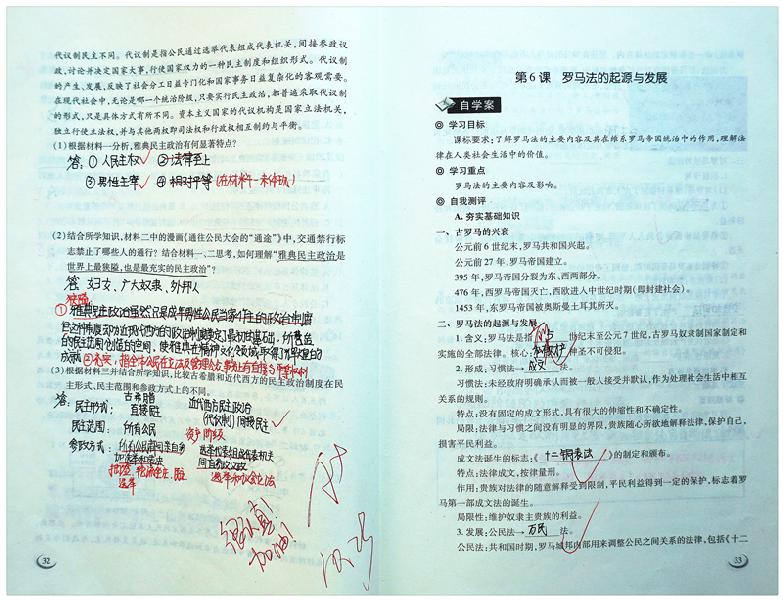 代议制民主不同。代议制是指公民通过选举代表组成代表机关,间接参政议
政,讨论并决定国家大事,行使国家权力的一种民主制度和组织形式。代议制
的产生、发展,反映了社会分工日益专门化和国家事务日益复杂化的客观需要。
在现代社会中,无论是哪一个统治阶级,只要实行民主政治,都普遍采取代议制
的形式,只是具体方式有所不同。资本主义国家的代议机构是国家立法机关,
独立行使立法权,并与其他两权即司法权和行政权相互制约与平衡。
(1)根据材料一分析,雅典民主政治有何显著特点?
答:①人民主权 ②法律至上
③男性主宰 ④相对平等(在材料一未体现)
(2)结合所学知识,材料二中的漫画《通往公民大会的“通途”》中,交通禁行标
志禁止了哪些人的通行?结合材料一、二思考,如何理解“雅典民主政治是
世界上最狭隘,也是最充实的民主政治”?
答 妇女、广大奴隶、外邦人
狭隘
①雅典民主政治虽然只是成年男性公民当家作主的政治制度
(3)根据材料三并结合所学知识,比较古希腊和近代西方的民主政治制度在民
主形式、民主范围和参政方式上的不同。
答: 古希腊 近代西方民主政治
民主形式: 直接民主 (代议制)间接民主
民主范围: 所有公民 资产阶级
参政方式: 所有公民都亲自参 选举代表组成代表机关
加选举和表决 间接参议政
选举 选举和议会立法
很认真!
加油!
32
第6课 罗马法的起源与发展
自学案
◎ 学习目标
课标要求:了解罗马法的主要内容及其在维系罗马帝国统治中的作用,理解法
律在人类社会生活中的价值。
◎ 学习重点
罗马法的主要内容及影响。
◎ 自我测评
A. 夯实基础知识
一、古罗马的兴衰
公元前6世纪末,罗马共和国兴起。
公元前27年,罗马帝国建立。
395年,罗马帝国分裂为东、西两部分。
476年,西罗马帝国灭亡,西欧进入中世纪时期(即封建社会)。
1453年,东罗马帝国被奥斯曼土耳其所灭。
二、罗马法的起源与发展
1. 含义:罗马法是指 前6 世纪末至公元7世纪,古罗马奴隶制国家制定和
实施的全部法律。核心: 神圣不可侵犯。
2. 形成:习惯法→ 成文 法。
习惯法:未经政府明确承认而被一般人接受并默认,作为处理社会生活中相互
关系的规则。
特点:没有固定的成文形式,具有很大的伸缩性和不确定性。
局限:法律与习惯之间没有明显的界限,贵族随心所欲地解释法律,保护自己,
损害平民利益。
成文法诞生的标志:《十二铜表法》的制定和颁布。
特点:法律成文,按律量刑。
作用:贵族对法律的随意解释受到限制,平民利益得到一定的保护,标志着罗
马第一部成文法的诞生。
局限性:维护奴隶主贵族的利益。
3. 发展:公民法→ 万民 法。
公民法:共和国时期,罗马城邦内部用来调整公民之间关系的法律,包括《十二
33